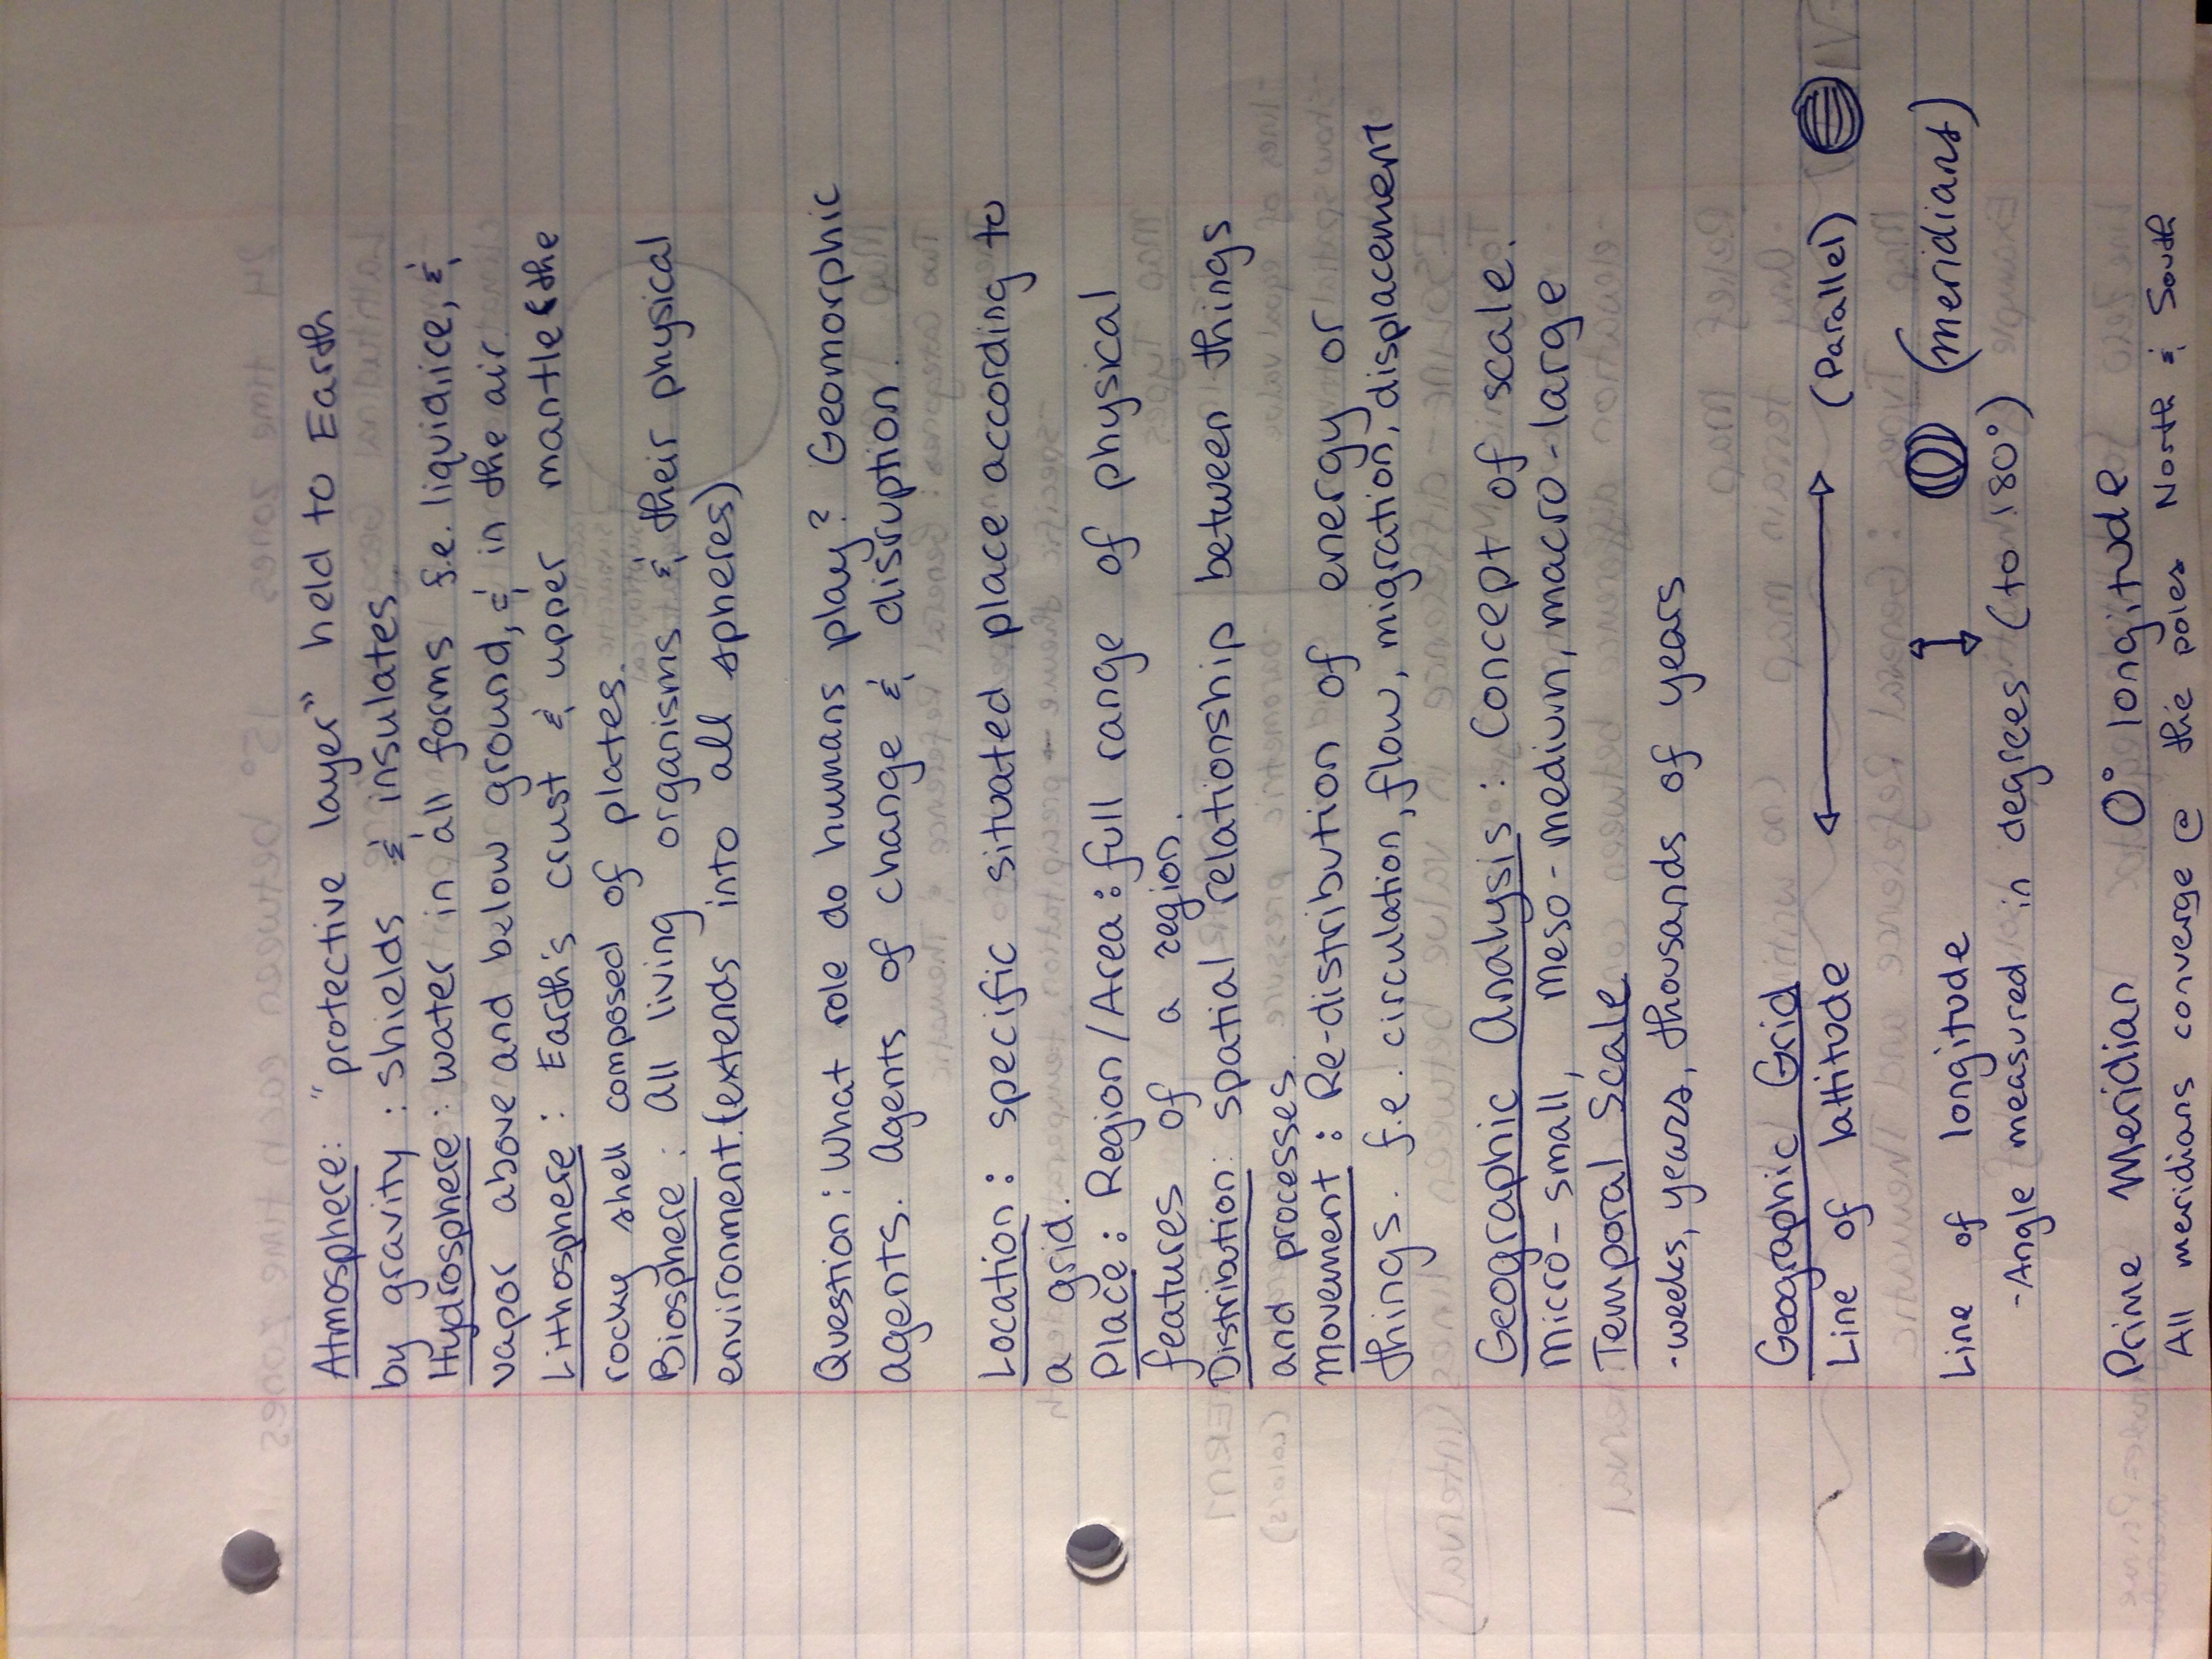 Atmosphere: "protective layer" held to Earth
by gravity: shields & insulates
Hydrosphere: water in all forms f.e. liquid, ice, &
vapor above and below ground, & in the air
Lithosphere: Earth's crust & upper mantle & the
rocky shell composed of plates.
Biosphere: All living organisms & their physical
environment. (extends into all spheres)
Question: What role do humans play? Geomorphic
agents. Agents of change & disruption.
Location: specific situated place according to
a grid.
Place: Region/Area: full range of physical
features of a region.
Distribution: spatial relationship between things
and processes.
Movement: Re-distribution of energy or
things. f.e. circulation, flow, migration, displacement
Geographic Analysis: Concept of scale.
Micro-small, Meso-medium, macro-large
Temporal Scale
-weeks, years, thousands of years
Geographic Grid
Line of lattitude (Parallel)
Line of longitude (meridians)
-Angle measured in degrees (to 180°)
Prime Meridian 0° longitude
All meridians converge @ the poles North & South